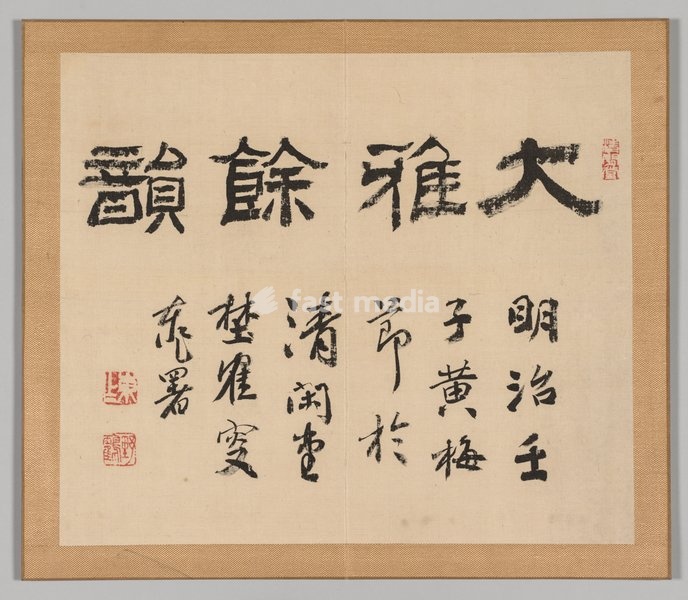 大雅餘韻
明治壬
子黄梅
節於
清閑堂
埜隺叟
署
fast media